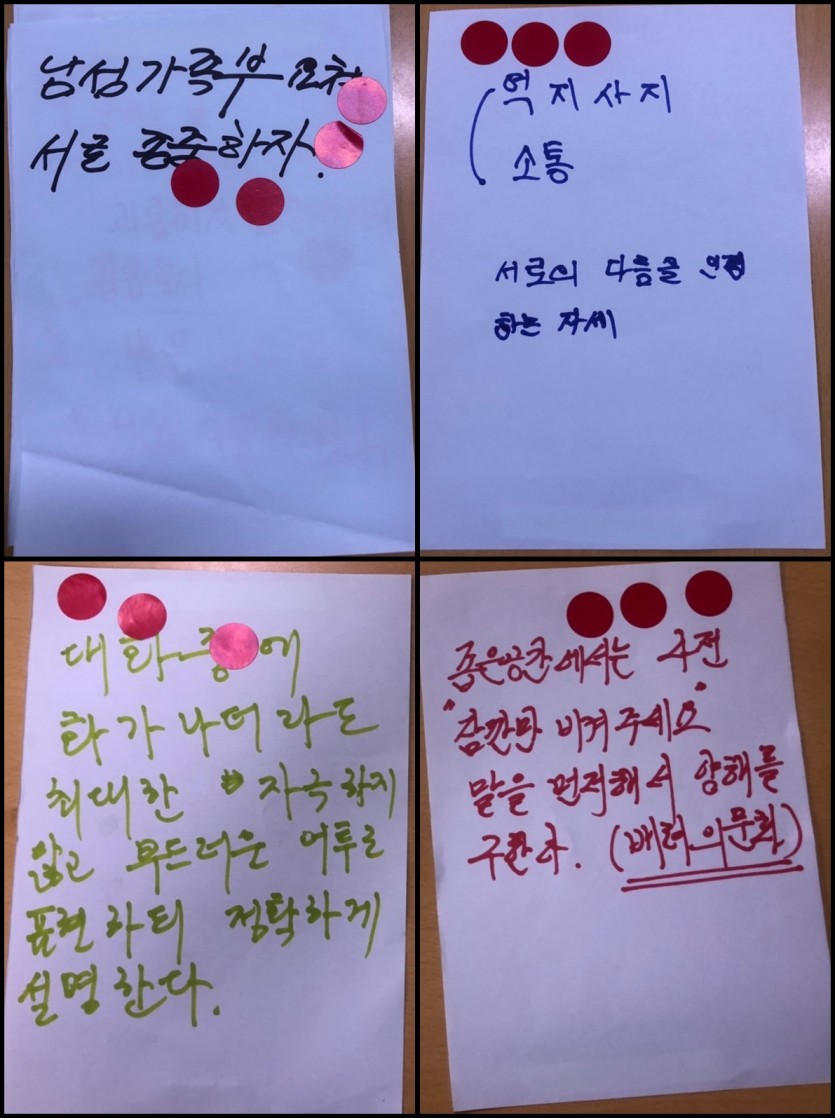 남성가족부 요청
서로 존중하자.
역지사지
소통
서로의 다름을 인정
하는 자세
대화중에
화가나더라도
최대한 자극하지
않고 부드러운 어투로
표현하되 정확하게
설명한다.
좁은공간에서는 사전
"잠깐만 비켜주세요"
말을 먼저해서 양해를
구한다. (배려의문화)